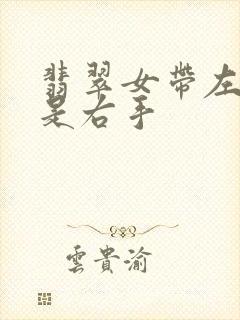 翡翠女帶左
是右手
雲貴渝